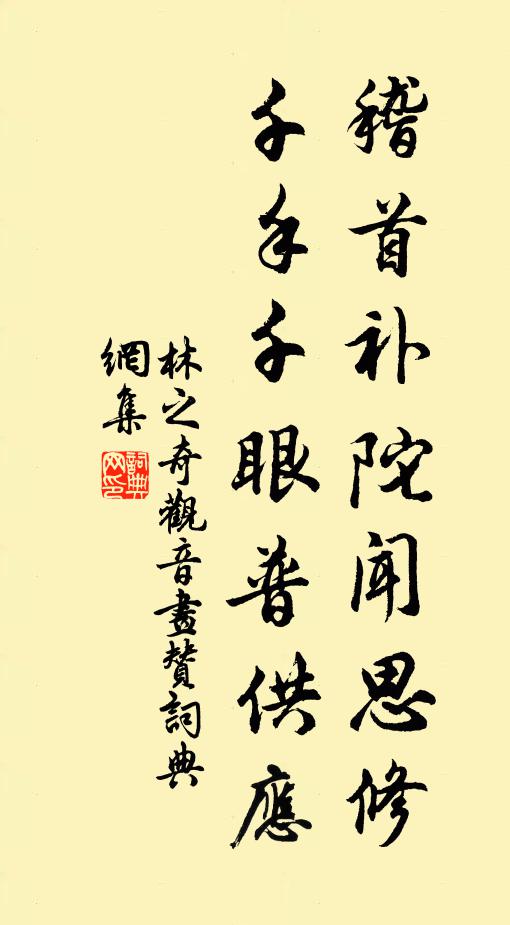 稽首补陀闻思修
千手千眼普供應
林之奇觀音畫贊詞典
網集
詞典
网印